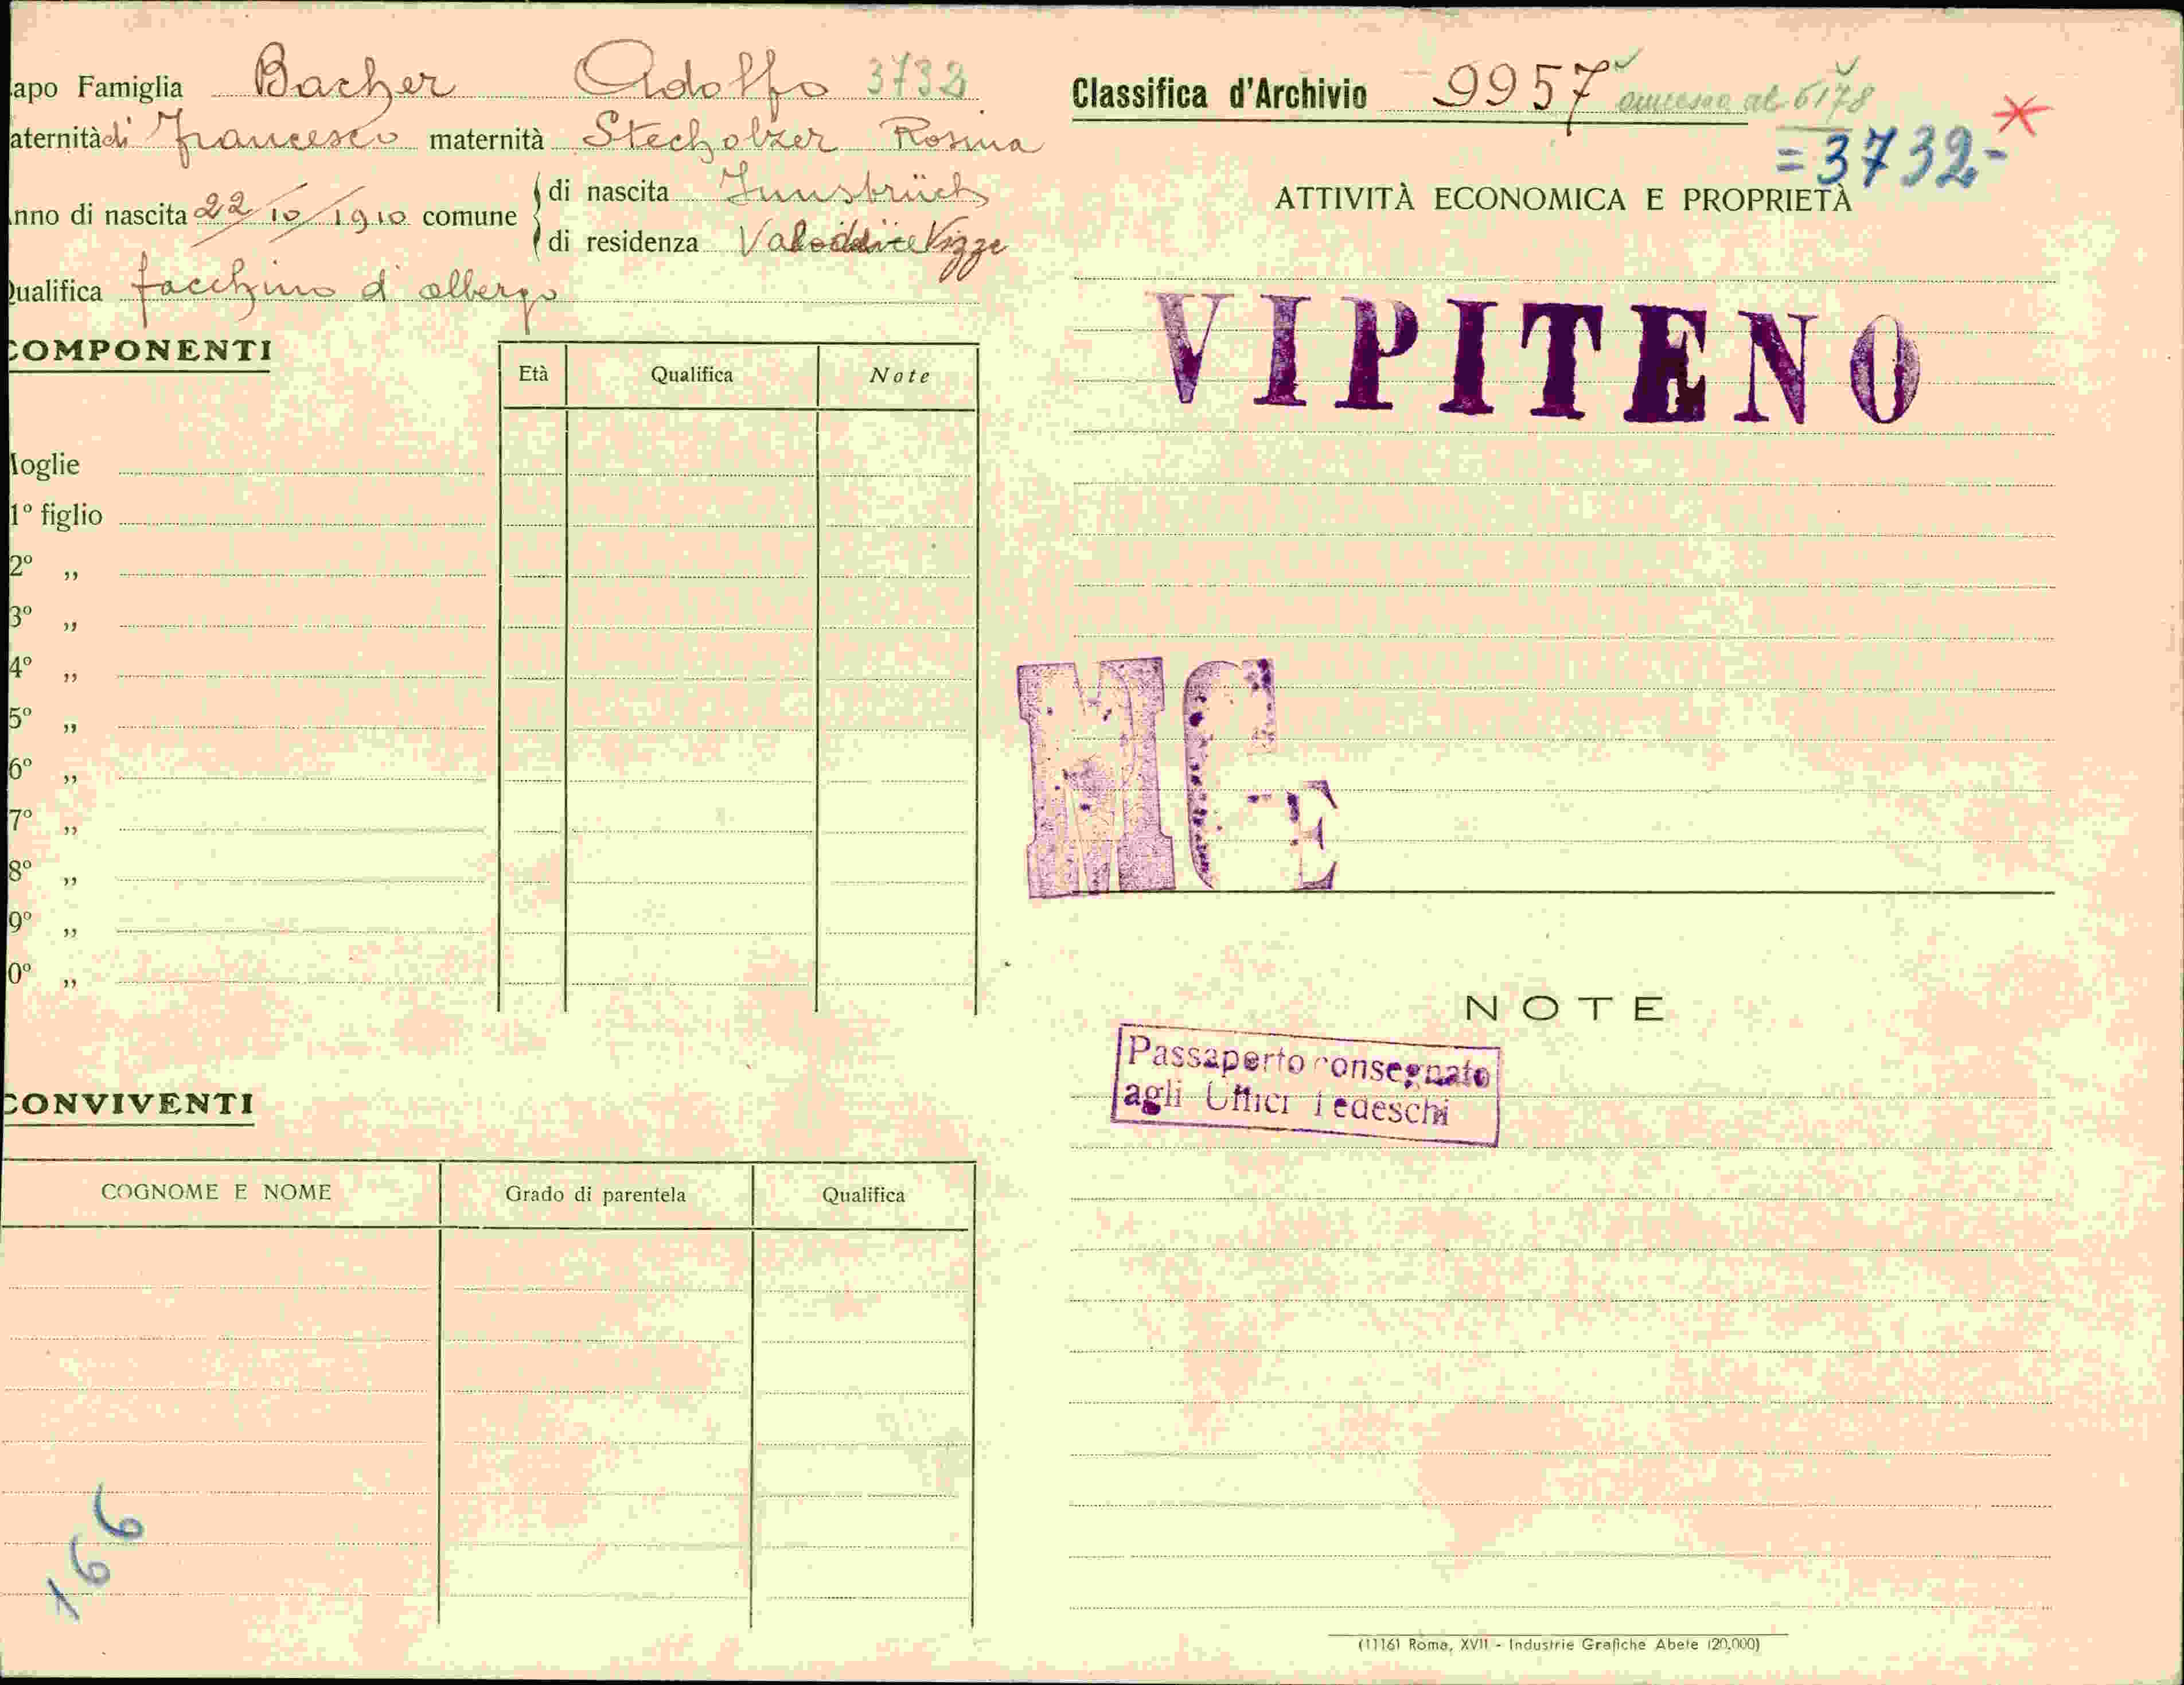 apo Famiglia Bacher Adolfo 3732
aternità di Francesco maternità Stecholzer Rosina
nno di nascita 22/10/1910 comune di nascita Innsbrück
di residenza Val Vizze
ualifica facchino d'albergo
COMPONENTI
Età Qualifica Note
oglie
1º figlio
2º „
3º „
4º „
5º „
6º „
7º „
8º „
9º „
0º „
CONVIVENTI
COGNOME E NOME Grado di parentela Qualifica
166
Classifica d'Archivio 9957 annesso al 6178
=3732-
ATTIVITÀ ECONOMICA E PROPRIETÀ
VIPITENO
E
NOTE
Passaperto consegnato
agli Uffici Tedeschi
(1116) Roma, XVII - Industrie Grafiche Abete (20.000)